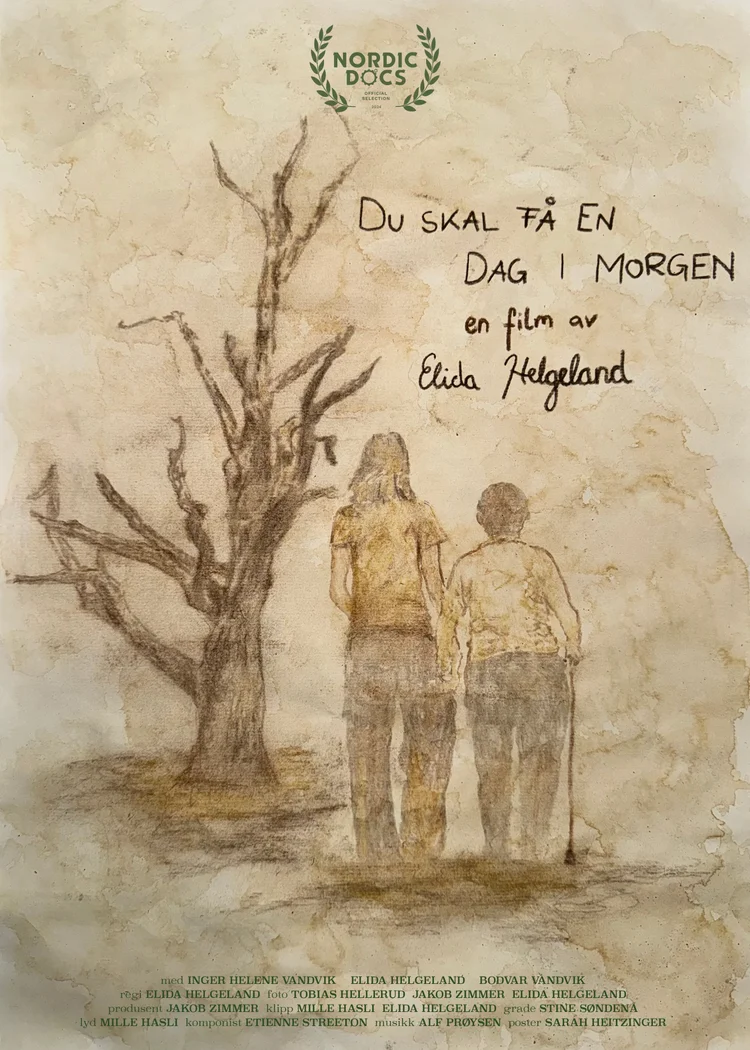 NORDIC
DOCS
OFFICIAL
SELECTION
DU SKAL FÅ EN
DAG I MORGEN
en film av
Elida Helgeland
med INGER HELENE VANDVIK ELIDA HELGELAND BODVAR VANDVIK
regi ELIDA HELGELAND foto TOBIAS HELLERUD JAKOB ZIMMER ELIDA HELGELAND
produsent JAKOB ZIMMER klipp MILLE HASLI ELIDA HELGELAND grade STINE SØNDENÅ
lyd MILLE HASLI komponist ETIENNE STREETON musikk ALF PRØYSEN poster SARAH HEITZINGER